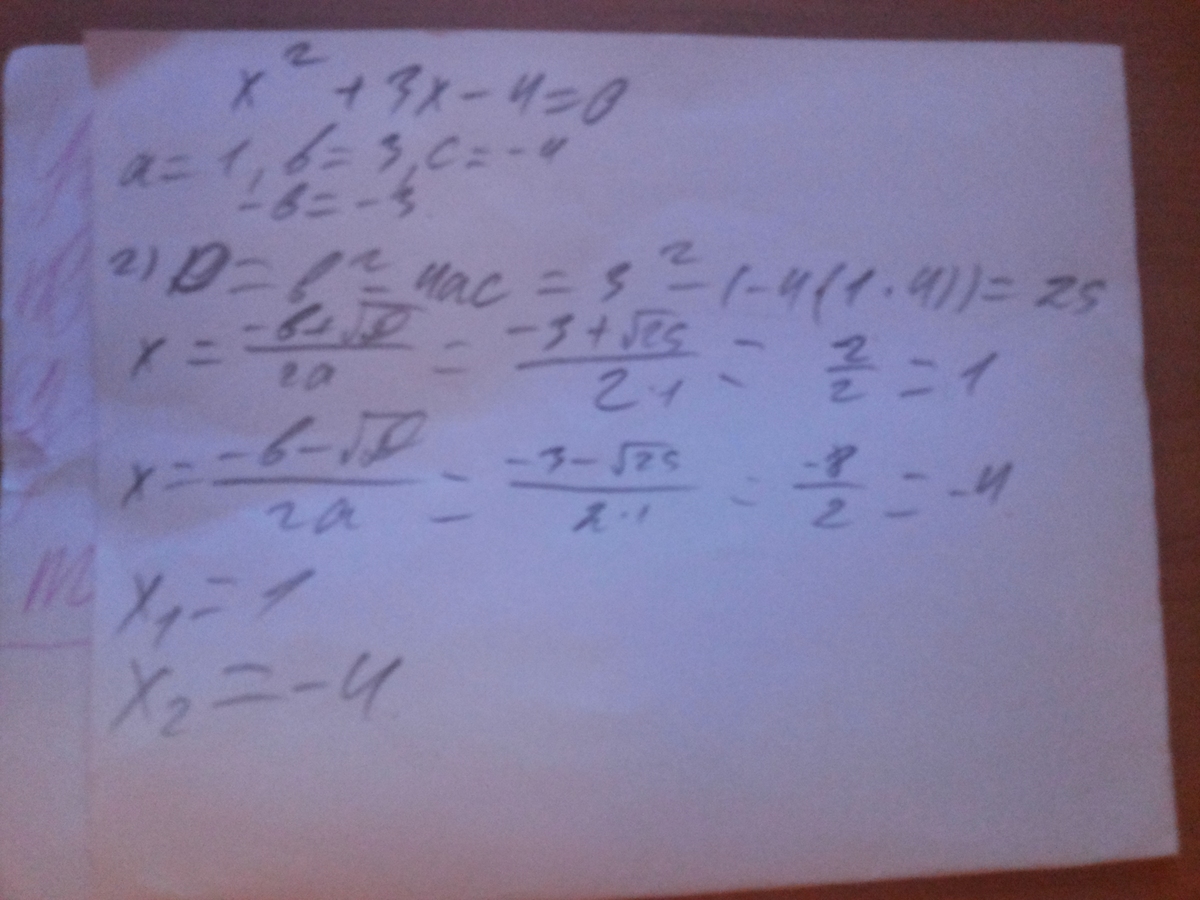 x² + 3x - 4 = 0
a = 1, b = 3, c = -4
-b = -3
2) D = b² - 4ac = 3² - (-4(1·4)) = 25
x = (-b+√D)/2a = (-3+√25)/2·1 = 2/2 = 1
x = (-b-√D)/2a = (-3-√25)/2·1 = -8/2 = -4
x₁ = 1
x₂ = -4